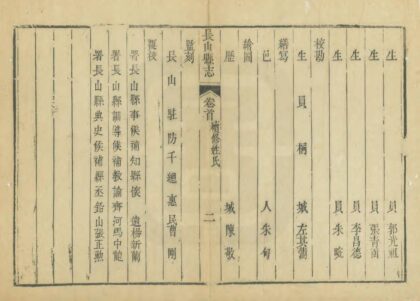 生員郭光
生員張青南
生員李昌德
生員朱
校勘
生員桐城左其
繕寫
邑人朱甸
繪圖
歷城陳敬
長山縣志
卷首
補修姓氏
二
監刻
長山駐防千總惠民曹剛
覆校
署長山縣事候補知縣遠楊新蘭
署長山縣訓導候補教諭齊河馬中
署長山縣典史候補縣丞鉛山張正勳